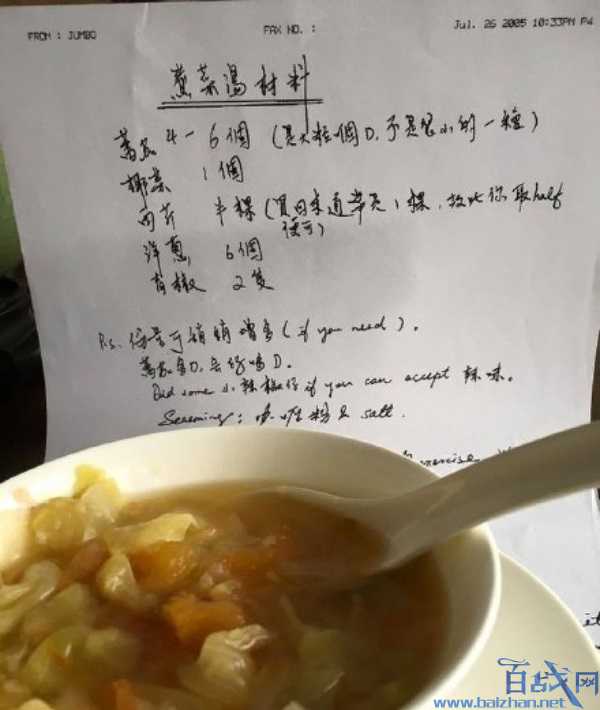 FROM : JUMBO FAX NO. : Jul. 26 2005 10:33PM P4
蔬菜湯材料
蕃茄 4-6個 (買大粒個D,不是 小的一種)
椰菜 1個
西芹 半棵 (買回來通常是1棵,故此你取half
便可)
洋蔥 6個
青椒 2隻
P.s. 份量可稍稍增多 (if you need).
蕃茄多D, 會好 D.
Did some 小辣椒仔 if you can accept 辣味。
Seasoning: 咖喱粉 & salt.
exercise
it
百战网
www.baizhan.net